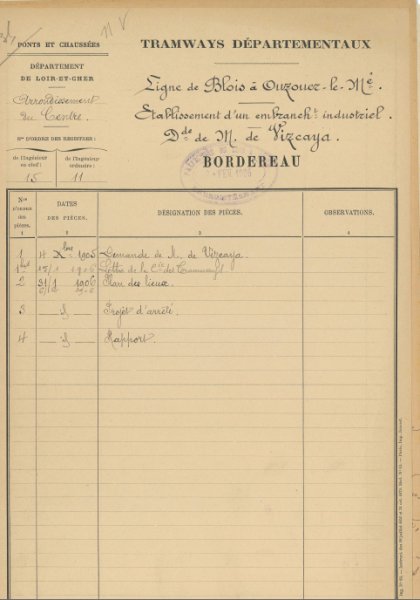 11 V
PONTS ET CHAUSSÉES
DÉPARTEMENT
DE LOIR-ET-CHER
Arrondissement
du Centre.
Nos D'ORDRE DES REGISTRES :
de l'Ingénieur en chef :
de l'Ingénieur ordinaire :
15
11
TRAMWAYS DÉPARTEMENTAUX
Ligne de Blois à Ouzouer-le-Mé
Etablissement d'un embrancht industriel.
Dde de M. de Vizcaya.
BORDEREAU
Nos d'ordre des pièces.
DATES DES PIÈCES.
DÉSIGNATION DES PIÈCES.
OBSERVATIONS.
1 2 3 4
1 14 Xbre 1905 Demande de M. de Vizcaya
1bis 1906 Lettre de la Cie des Tramways
2 31/1 1906 Plan des lieux.
3 — d — Projet d'arrêté.
4 — d — Rapport.